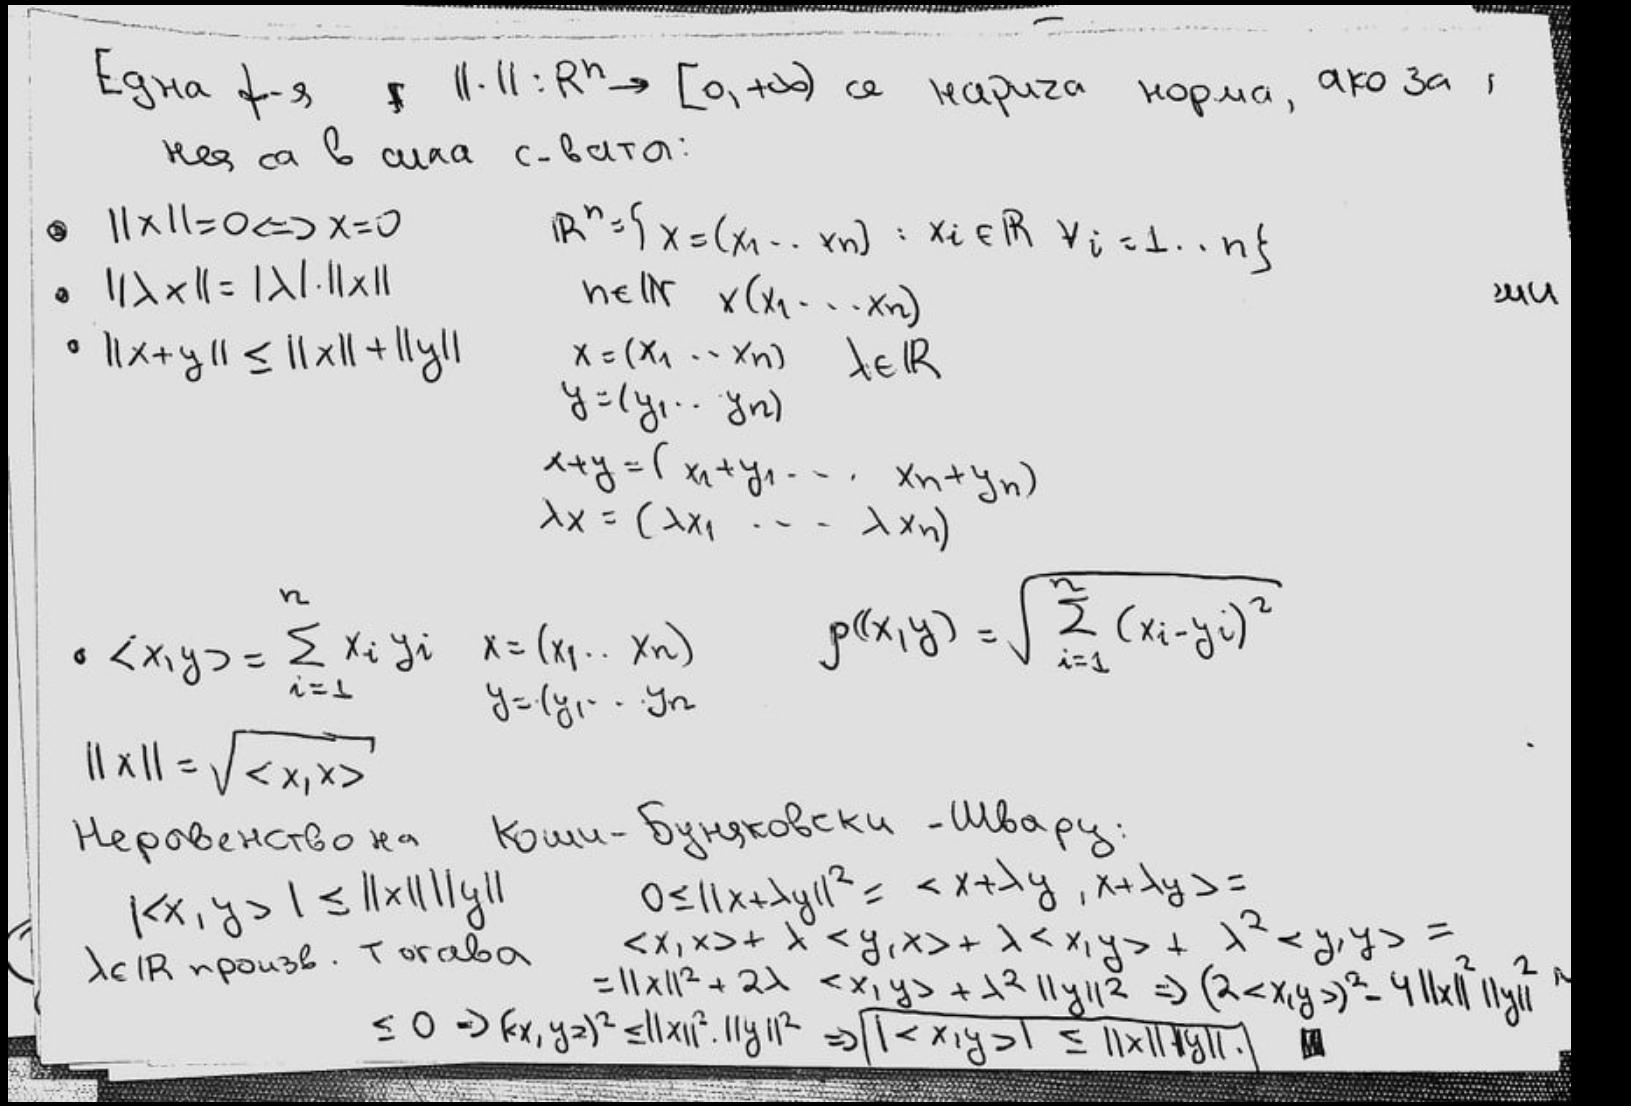 Една ф-я ||·|| : Rⁿ → [0, +∞) се нарича норма, ако за
нея са в сила с-вата:
• ||x||=0 <=> x=0
ℝⁿ={x=(x₁.. xₙ) : xᵢ∈ℝ ∀i=1..n}
• ||λx|| = |λ|.||x||
n∈ℕ x(x₁...xₙ)
• ||x+y|| ≤ ||x|| + ||y||
x=(x₁ .. xₙ) λ∈ℝ
y=(y₁.. yₙ)
x+y=(x₁+y₁.... xₙ+yₙ)
λx = (λx₁ .... λxₙ)
• <x,y> = ∑ᵢ₌₁ⁿ xᵢyᵢ x=(x₁.. xₙ)
y=(y₁.. yₙ
ρ((x,y) = √(∑ᵢ₌₁ⁿ (xᵢ-yᵢ)²)
||x|| = √<x,x>
Неравенство на Коши-Буняковски-Шварц:
|<x,y>| ≤ ||x||||y||
0≤||x+λy||² = <x+λy, x+λy> =
λ∈ℝ произв. Тогава <x,x> + λ<y,x> + λ<x,y> + λ²<y,y> =
=||x||² + 2λ <x,y> + λ²||y||² => (2<x,y>)² - 4||x||²||y||²
≤ 0 => (<x,y>)² ≤ ||x||².||y||² => |<x,y>| ≤ ||x||||y||.